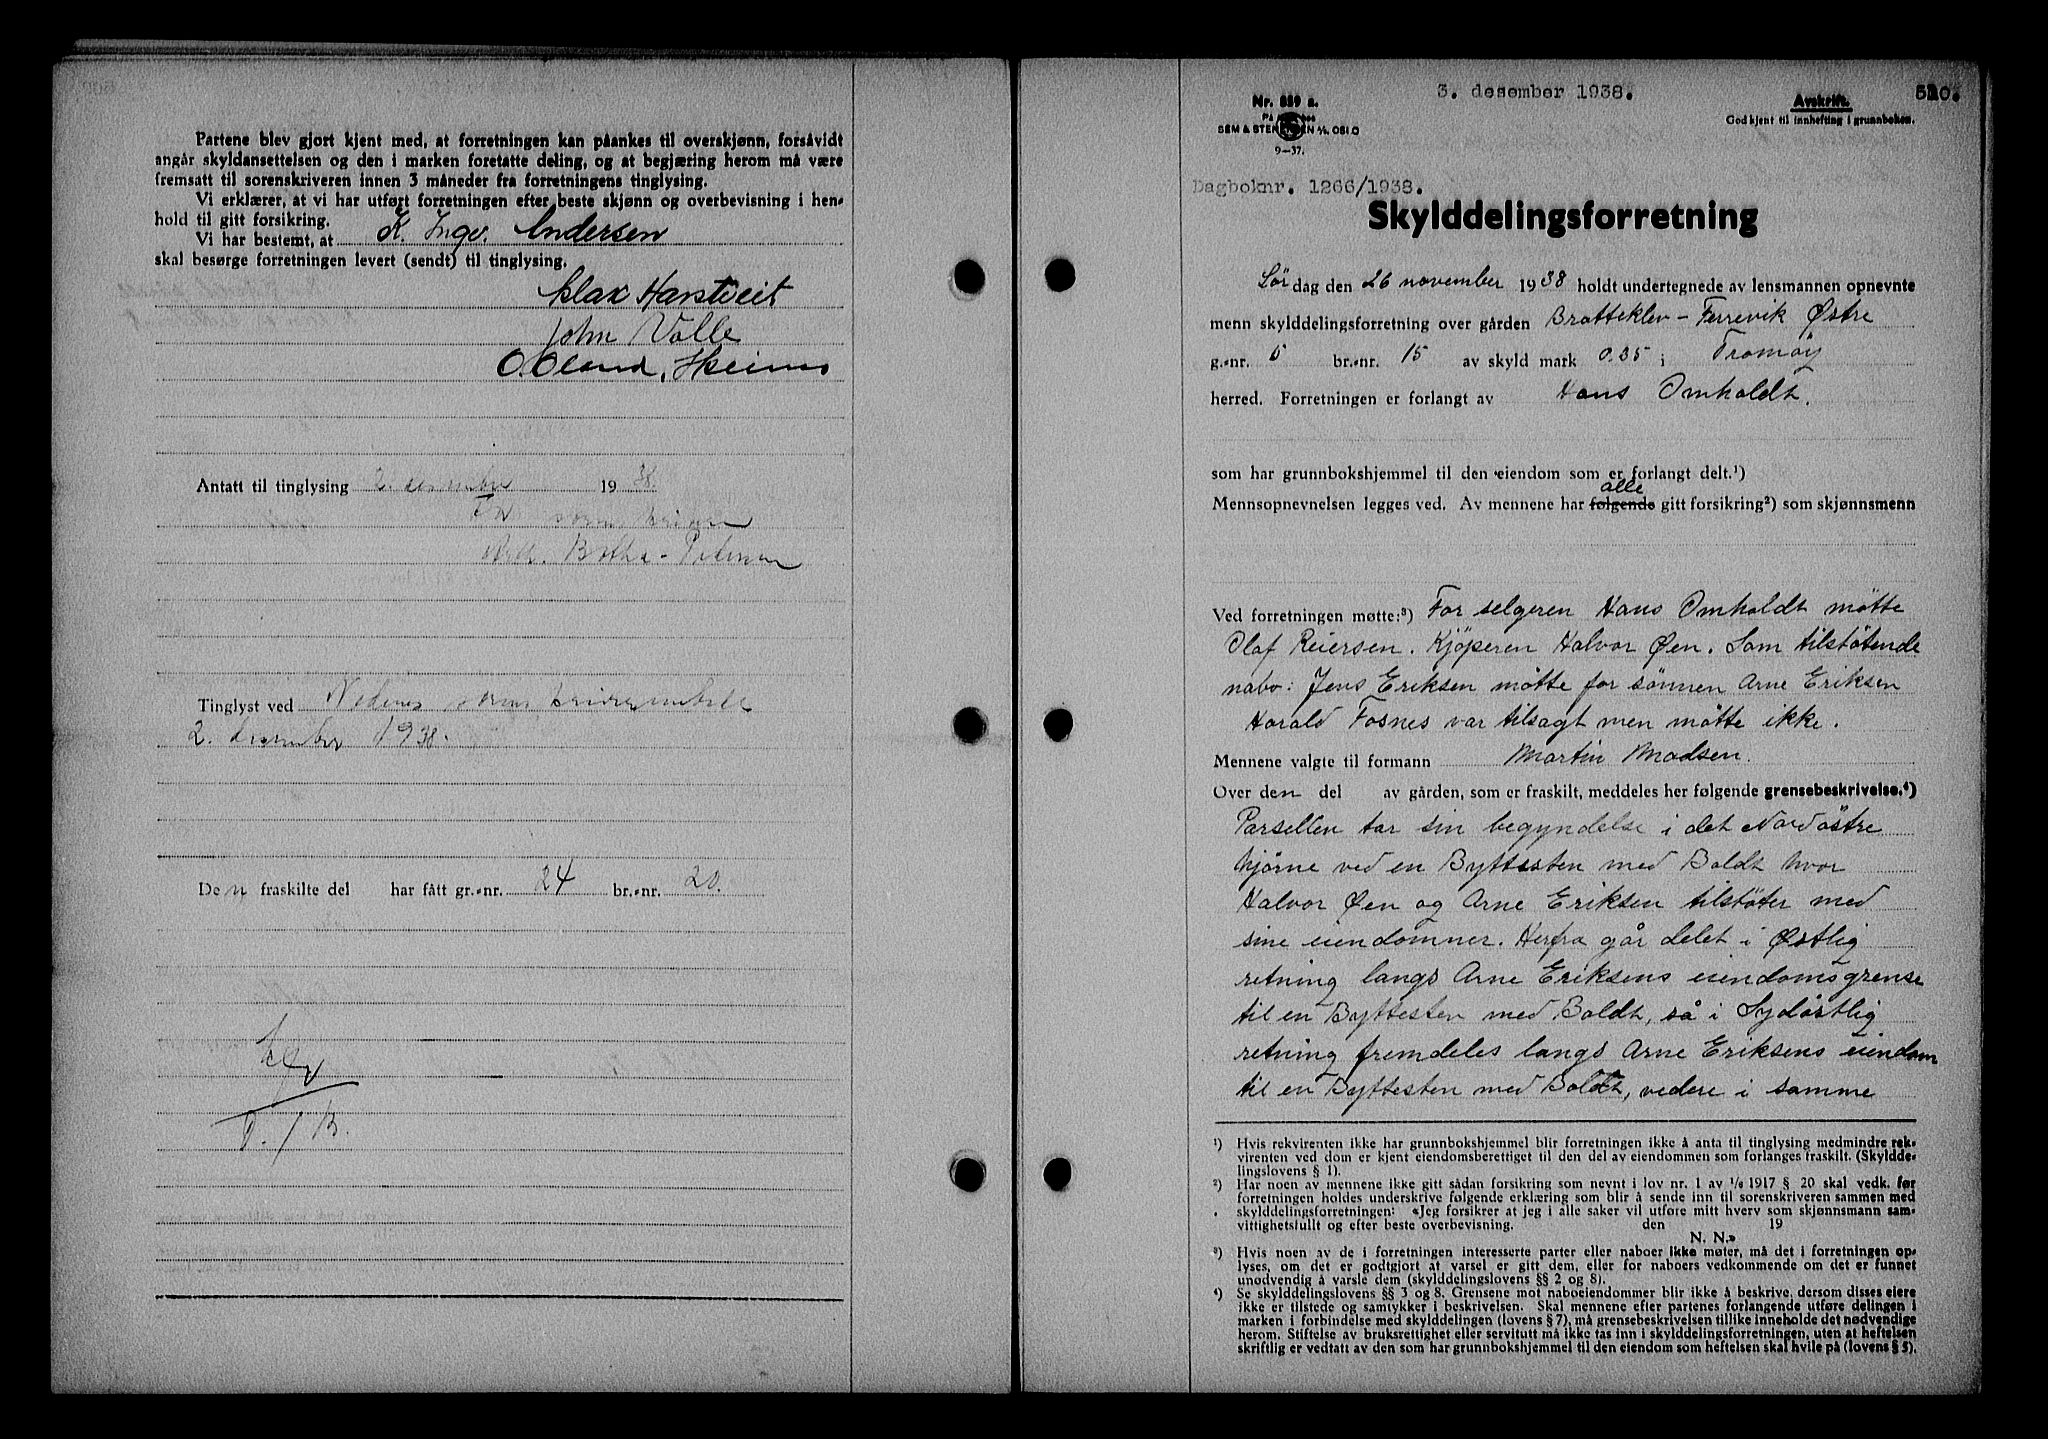 Partene blev gjort kjent med, at forretningen kan påankes til overskjønn, forsåvidt
angår skyldansettelsen og den i marken foretatte deling, og at begjæring herom må være
fremsatt til sorenskriveren innen 3 måneder fra forretningens tinglysing.
Vi erklærer, at vi har utført forretningen efter beste skjønn og overbevisning i hen-
hold til gitt forsikring.
Vi har bestemt, at K. Ingv. Andersen
skal besørge forretningen levert (sendt) til tinglysing.
Harstveit
John Valle
O. Oland,
Antatt til tinglysing 2. desember 1938.
Tinglyst ved Nedenes sorenskriverembete
2. desember 1938.
Den fraskilte del har fått gr.-nr. 24 br.-nr. 20.
3. desember 1938.
Nr. 889 a.
SEM & STENERSEN A/S, OSLO
9-37.
Avskrift.
Godkjent til innhefting i grunnboken.
Dagboknr. 1266/1938.
Skylddelingsforretning
Lördag den 26 november 1938 holdt undertegnede av lensmannen opnevnte
menn skylddelingsforretning over gården Bratteklev - Færevik Østre
g.-nr. 5 br.-nr. 15 av skyld mark 0.35 i Tromöy
herred. Forretningen er forlangt av Hans Omholdt.
som har grunnbokshjemmel til den eiendom som er forlangt delt.¹)
alle
Mennsopnevnelsen legges ved. Av mennene har følgende gitt forsikring²) som skjønnsmenn
Ved forretningen møtte:³) For selgeren Hans Omholdt mötte
Olaf Reiersen. Kjöperen Halvor Øen. Som tilstötende
nabo: Jens Eriksen mötte for sönnen Arne Eriksen
Harald Fosnes var tilsagt men mötte ikke.
Mennene valgte til formann Martin Madsen.
Over den del av gården, som er fraskilt, meddeles her følgende grensebeskrivelse.⁴)
Parsellen tar sin begyndelse i det Nordöstre
hjörne ved en Byttesten med Boldt hvor
Halvor Øen og Arne Eriksen tilstöter med
sine eiendomner. Herfra går delet i Østlig
retning langs Arne Eriksens eiendomsgrense
til en Byttesten med Boldt, så i Sydöstlig
retning fremdeles langs Arne Eriksens eiendom
til en Byttesten med Boldt, vedere i samme
¹) Hvis rekvirenten ikke har grunnbokshjemmel blir forretningen ikke å anta til tinglysing medmindre rek-
virenten ved dom er kjent eiendomsberettiget til den del av eiendommen som forlanges fraskilt. (Skyldde-
lingslovens § 1).
²) Har noen av mennene ikke gitt sådan forsikring som nevnt i lov nr. 1 av 1/6 1917 § 20 skal vedk. før
forretningen holdes underskrive følgende erklæring som blir å sende inn til sorenskriveren sammen med
skylddelingsforretningen: «Jeg forsikrer at jeg i alle saker vil utføre mitt hverv som skjønnsmann sam-
vittighetsfullt og efter beste overbevisning. den 19
N. N.»
³) Hvis noen av de i forretningen interesserte parter eller naboer ikke møter, må det i forretningen op-
lyses, om det er godtgjort at varsel er gitt dem, eller for naboers vedkommende om det er funnet
unødvendig å varsle dem (skylddelingslovens §§ 2 og 8).
⁴) Se skylddelingslovens §§ 3 og 8. Grensene mot naboeiendommer blir ikke å beskrive, dersom disses eiere
ikke er tilstede og samtykker i beskrivelsen. Skal mennene efter partenes forlangende utføre delingen i
marken i forbindelse med skylddelingen (lovens § 7), må grensebeskrivelsen tillike inneholde det nødvendige
herom. Stiftelse av bruksrettighet eller servitutt må ikke tas inn i skylddelingsforretningen, uten at heftelsen
skriftlig er vedtatt av den som har grunnbokshjemmel til den eiendom som heftelsen skal hvile på (lovens § 5).